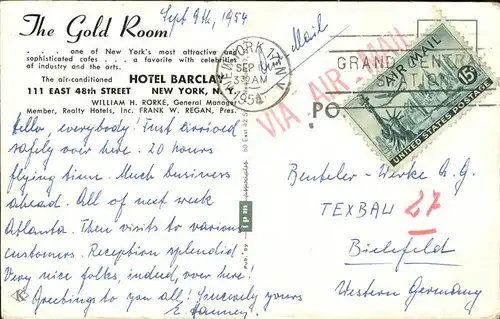 Sept 9th, 1954
The Gold Room
. . . . one of New York's most attractive and
sophisticated cafes . . . a favorite with celebrities
of industry and the arts.
The air-conditioned HOTEL BARCLAY
111 EAST 48th STREET NEW YORK, N. Y.
WILLIAM H. RORKE, General Manager
Member, Realty Hotels, Inc. FRANK W. REGAN, Pres.
Hello, everybody! Just arrived
safely over here. 20 hours
flying time. Much business
ahead. All of next week
Atlanta. Then visits to various
customers. Reception splendid.
Very nice folks, indeed, over here!
Greetings to you all! Sincerely yours
K
60 East 42 S
ipm
Pub. by
Mail
NEW YORK 17 N.Y.
SEP 10
3 30 AM
1954
GRAND CENTR
VIA AIR-MAIL
PO
AIR MAIL
15¢
UNITED STATES POSTAGE
Benteler-Werke A.G.
TEXBAU 27
Bielefeld
Western Germany